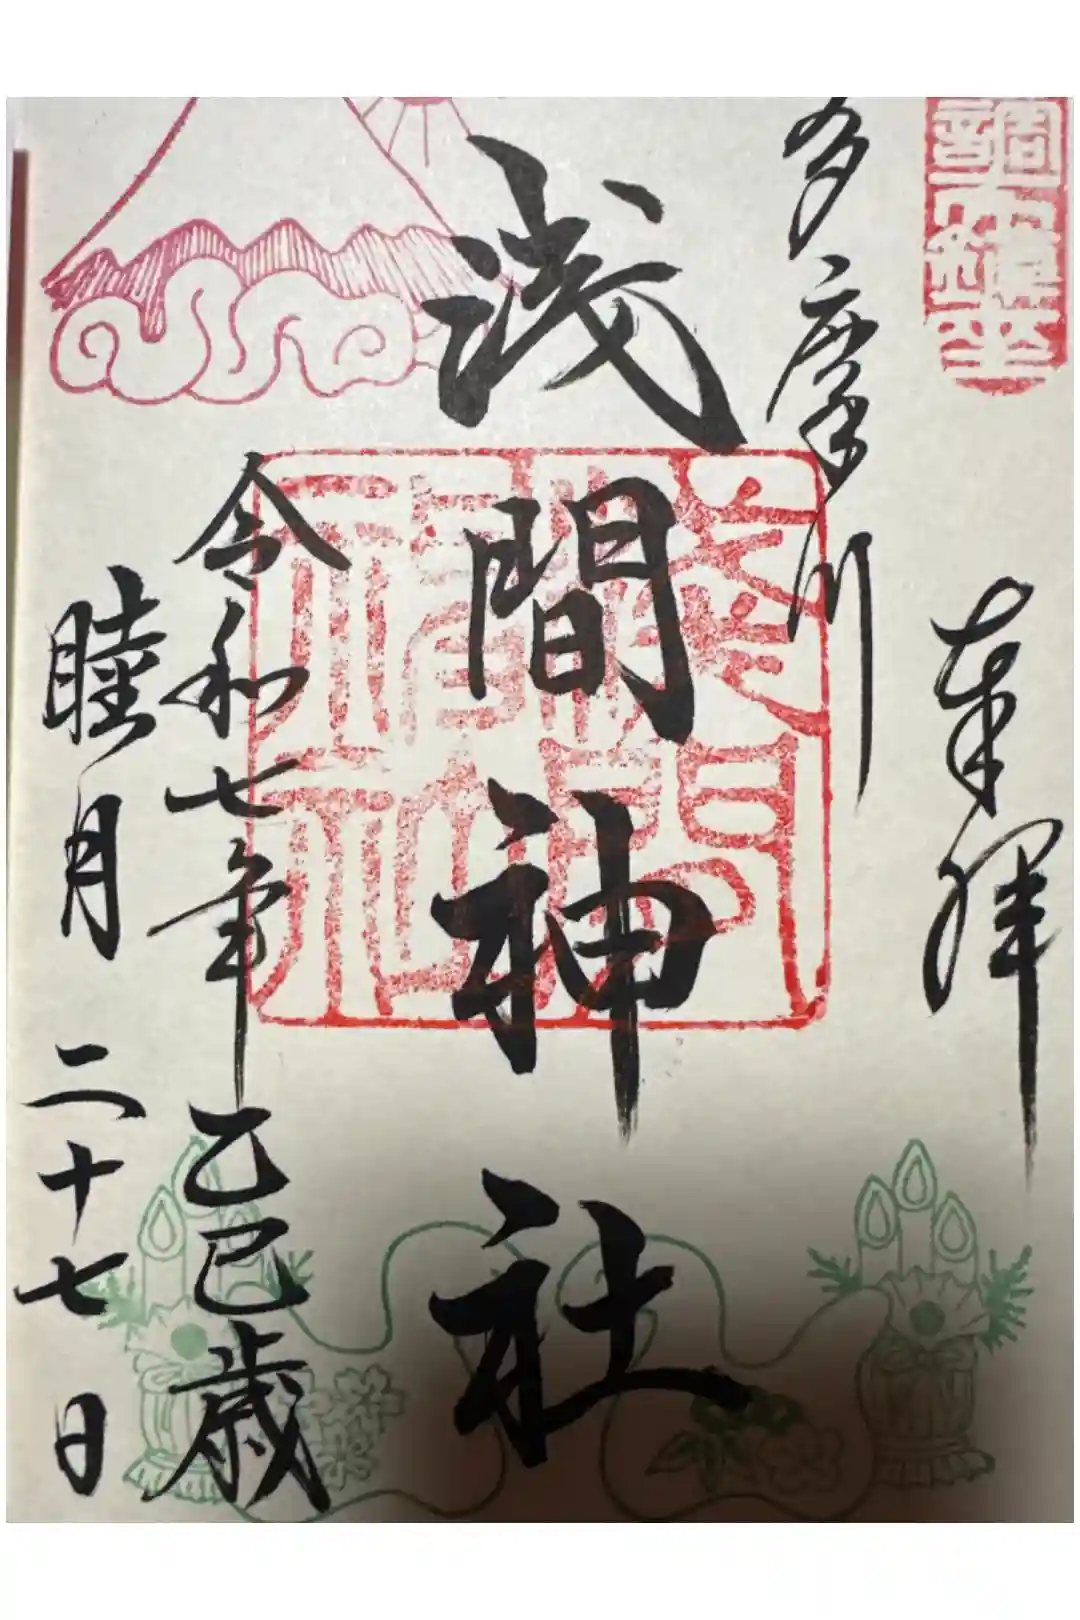 奉拝
多摩川
浅間神社
令和七年乙巳歳
睦月二十七日